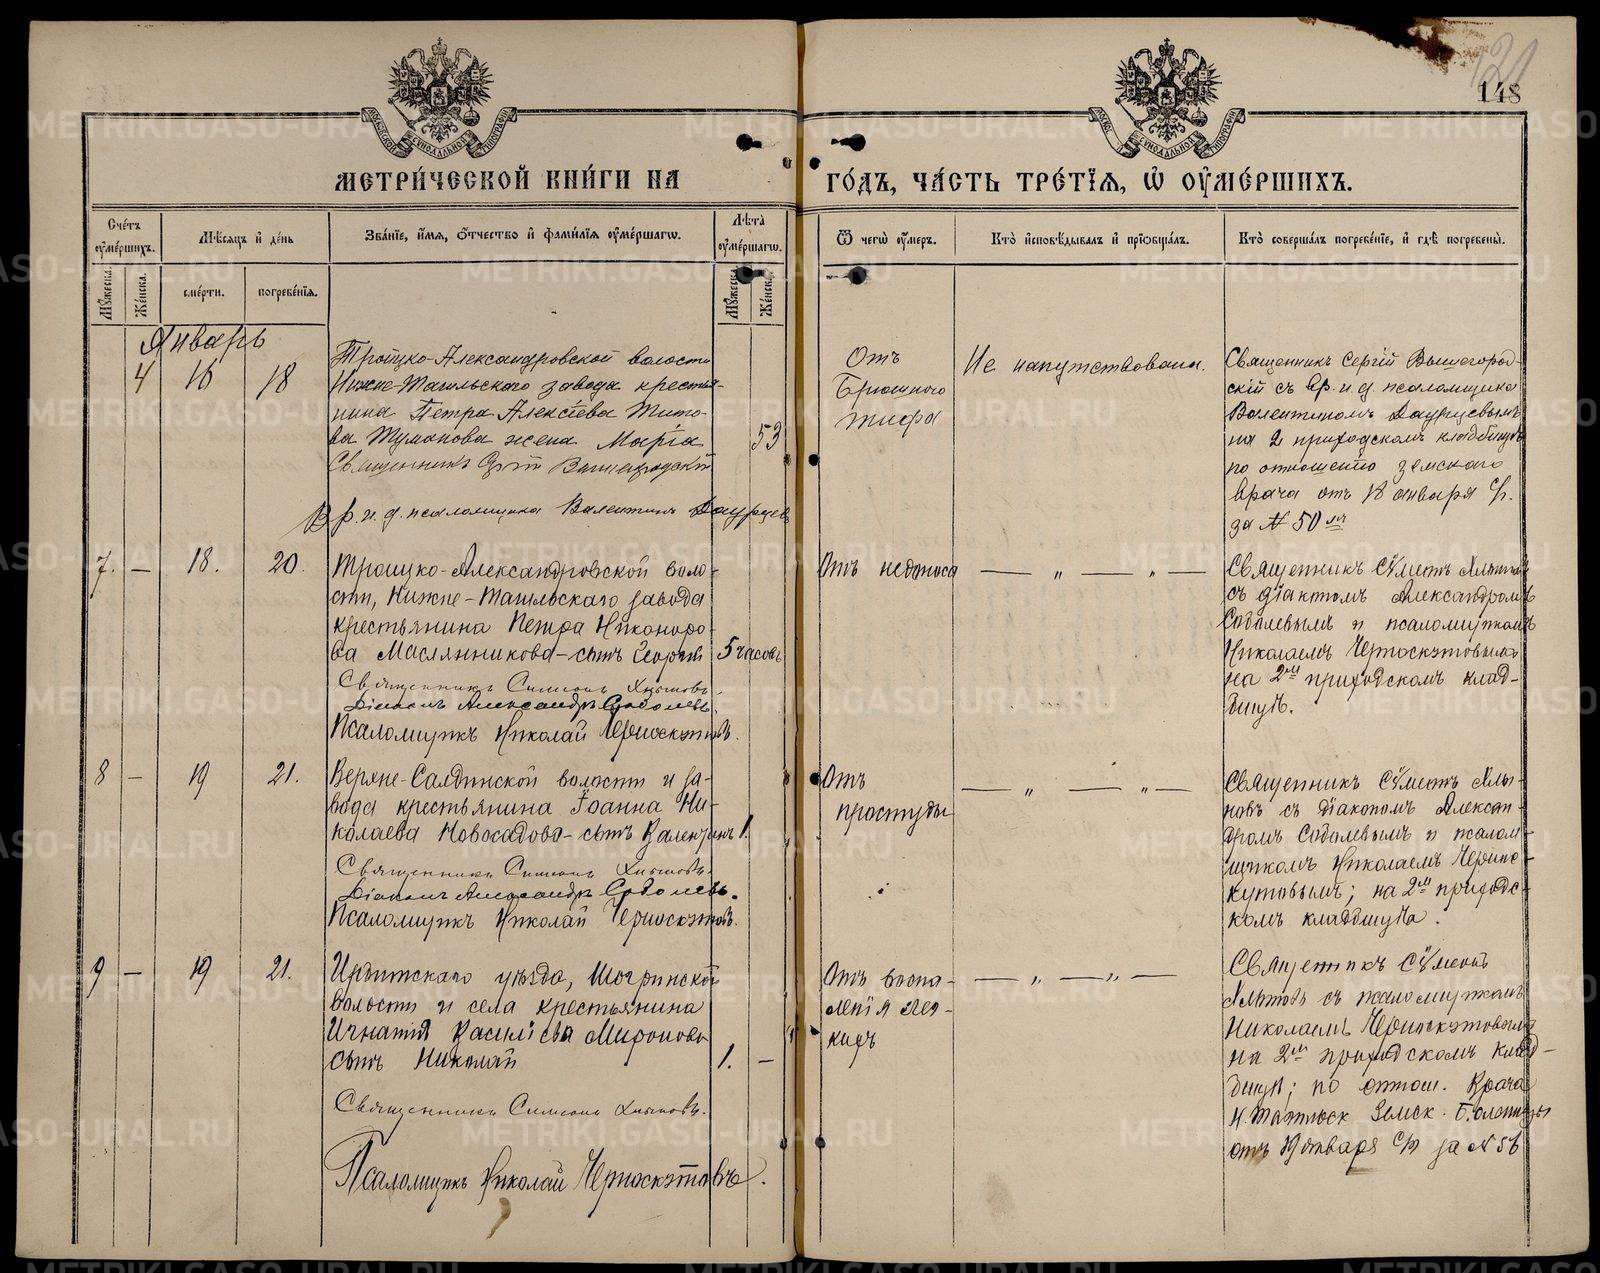 148
МЕТРИ́ЧЕСКОЙ КНИ́ГИ НА
ГО́ДЪ, ЧА́СТЬ ТРЕ́ТІѦ, Ѡ ОУМЕ́РШИХЪ.
Сче́тъ оуме́ршихъ.
Мѣ́сѧцъ и де́нь
Зва́нїе, и́мѧ, о́тчество и фами́лїѧ оуме́ршагѡ.
Лѣ́та оуме́ршагѡ.
Ѿ чегѡ̀ оу́меръ.
Кто̀ исповѣ́дывалъ и прїѡбща́лъ.
Кто̀ соверша́лъ погребе́нїе, и гдѣ̀ погребены̀.
Му́жеска.
Же́нска.
сме́рти.
погребе́нїѧ.
Му́жеска.
Же́нска.
Январь
4
16
18
Троицко-Александровской волости
Нижне-Тагильскаго завода крестья-
нина Петра Алексіева Тито-
ва Туманова жена Марія
53
Священникъ Сергій Вышегородскій
Вр. и. д. псаломщика Валентинъ Даурцевъ
Отъ
Брюшного
тифа
Не напутствована.
Священникъ Сергій Вышегород-
скій съ вр. и. д псаломщика
Валентиномъ Даурцевымъ
на 2 приходскомъ кладбищѣ
по отношенію земскаго
врача отъ 18 января с/г.
за № 50
7. —
18.
20.
Троицко-Александровской воло-
сти, Нижне-Тагильскаго завода
крестьянина Петра Никоноро-
ва Маслянникова-сынъ Георгій
5 часовъ
Священникъ Симеонъ Хлыновъ.
Діаконъ Александръ Соболевъ.
Псаломщикъ Николай Черноскутовъ.
Отъ недоноса
— „ — „ —
Священникъ Сѵмеонъ Хлыновъ
съ діакономъ Александромъ
Соболевымъ и псаломщикомъ
Николаемъ Черноскутовымъ
на 2мъ приходскомъ клад-
бищѣ.
8 —
19
21.
Верхне-Салдинской волости и за-
вода крестьянина Іоанна Ни-
колаева Новосадова-сынъ Валентинъ
1.
Священникъ Симеонъ Хлыновъ.
Діаконъ Александръ Соболевъ.
Псаломщикъ Николай Черноскутовъ.
Отъ
простуды
— „ — „ —
Священникъ Сѵмеонъ Хлы-
новъ съ діакономъ Алексан-
дромъ Соболевымъ и псалом-
щикомъ Николаемъ Чернос-
кутовымъ; на 2мъ приходс-
комъ кладбищѣ.
9 —
19
21.
Ирбитскаго уѣзда, Шогринской
волости и села крестьянина
Игнатія Васильева Миронова
сынъ Николай
1. —
Священникъ Симеонъ Хлыновъ.
Псаломщикъ Николай Черноскутовъ.
Отъ воспа-
ленія лег-
кихъ
— „ — „ —
Священникъ Сѵмеонъ
Хлыновъ съ псаломщикомъ
Николаемъ Черноскутовымъ
на 2мъ приходскомъ клад-
бищѣ; по отнош. Врача
Н. Тагильск Земск. Больницы
отъ января с/г за №